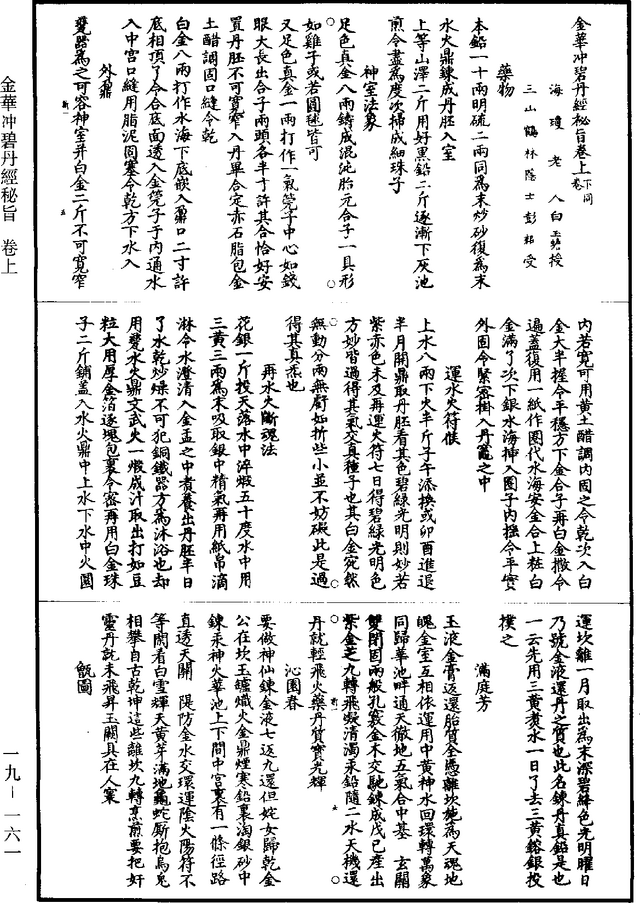 金華沖碧丹經秘旨卷上下同卷
海瓊老人白玉蟾授
三山鶴林隱士彭耜受
藥物
本鉛一十兩明硫二兩同為末炒砂復為末
水火鼎鍊成丹胚入室
上等山澤二斤用好黑鉛二斤逐漸下灰池
煎令盡為度次掃成細珠子
神室法象
足色真金八兩鑄成混沌胎元合子一具形
如雞子或若圓毬皆可
又足色真金一兩打作一氣筦子中心如錢
眼大長出合子兩頭各半寸許其合恰好安
置丹胚不可寬窄入丹畢合定赤石脂包金
土醋調固口縫令乾
白金八兩打作水海下底嵌入鼎口二寸許
底相頂了令合底面透入金筦子于內通水
入中宮口縫用脂泥固塞令乾方下水入
外鼎
甕器為之可容神室并白金二斤不可寬窄
內若寬可用黃土醋調內固之令乾次入白
金大半握令平穩方下金合子再白金撒令
遍蓋復用一紙作圈代水海安金合上粧白
金滿了次下銀水海挿入圈子內撫令平實
外固令緊密掛入丹竈之中
運水火符候
上水八兩下火半斤子午添換或卯酉進退
半月開鼎取丹胚看其色碧綠光明則妙若
紫赤色未及再運火符七日得碧綠光明色
方妙皆過得其氣交真種子也其白金宛然
無動分兩無虧如折些小並不妨礙此是過
得其真炁也
再水火斷魂法
花銀一斤投天落水中淬煅五十度水中用
三黃三兩為末吸取銀中精氣再用紙帛滴
淋令水澄清入金盂之中煮養出丹胚半日
了水乾炒燥不可犯銅鐵器方為沐浴也却
用甕水火鼎文武火一煅成汁取出打如豆
粒大用厚金箔逐塊包裹令密再用白金珠
子二斤鋪蓋入水火鼎中上水下水中火圓
運坎離一月取出為末深碧絳色光明曜日
乃號金液還丹之質也此名鍊丹真鉛是也
一云先用三黃煮水一日了去三黃鎔銀投
撲之
滿庭芳
玉液金膏返還胎質全憑離坎施為天魂地
魄金室互相依運用中黃神水回環轉萬象
同歸華池畔通天徹地五氣合中基 玄關
雙閉固兩般孔竅金木交馳鍊成戊己產出
紫金芝九轉飛凝清濁汞鉛隨二水天機還
丹就輕飛火藥丹質寶光輝
沁園春
要做神仙鍊金液七返九還但姹女歸乾金
公在坎玉罏熾火金鼎煙寒鉛裏淘銀砂中
鍊汞神火華池上下間中宮裏有一條徑路
直透天關 隄防金水交環運陰火陽符不
等閑看白雪輝天黃芽滿地龜蛇廝抱烏兔
相攀自古乾坤這些離坎九轉烹煎要把奸
靈丹就末飛昇玉闕具在人寰
甑圖
金華沖碧丹經秘旨 卷上
一九一一六一